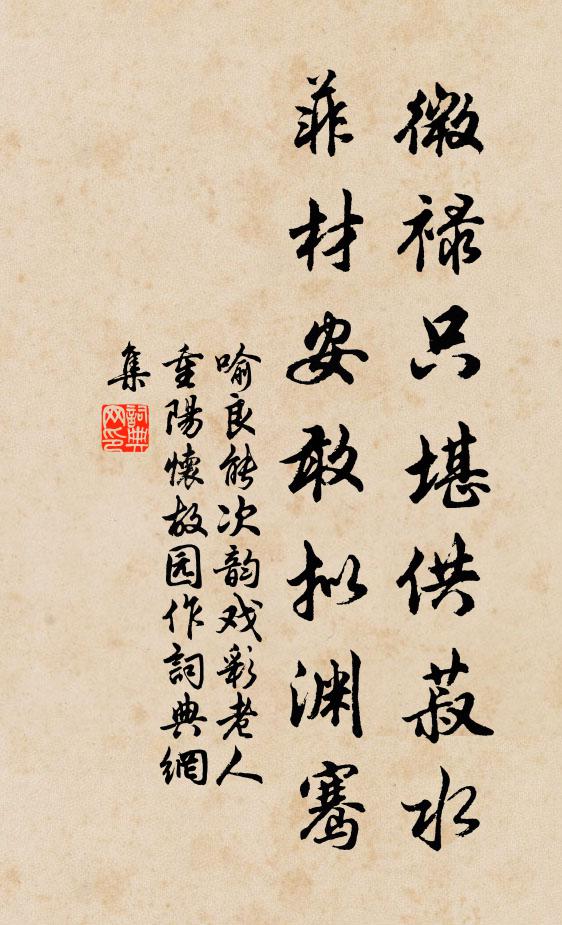 微禄只堪供菽水
菲材安敢拟渊骞
喻良能次韵戏彩老人
重陽懷故园作詞典網
集
詞典
网印